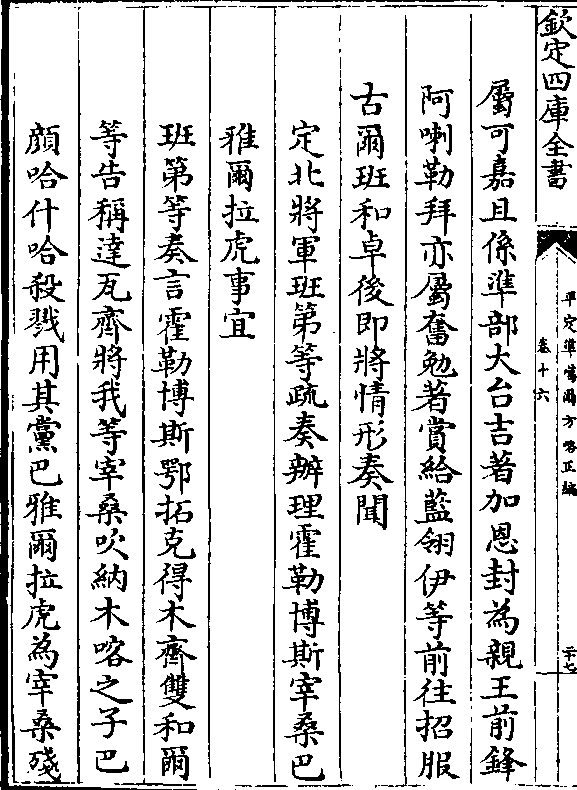 欽定四庫全書
平定準噶爾方略正編
卷十六
二十七
屬可嘉且係準部大台吉著加恩封為親王前鋒
阿喇勒拜亦屬奮勉著賞給藍翎伊等前往招服
古爾班和卓後即將情形奏聞
定北將軍班第等疏奏辦理霍勒博斯宰桑巴
雅爾拉虎事宜
班第等奏言霍勒博斯鄂拓克得木齊雙和爾
等告稱達瓦齊將我等宰桑吹納木喀之子巴
顔哈什哈殺戮用其黨巴雅爾拉虎為宰桑殘